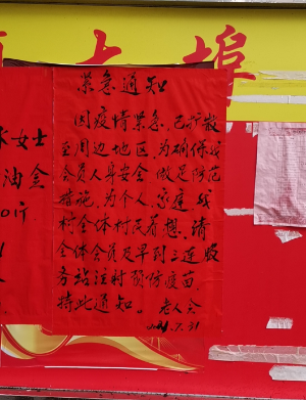 大埠
女士
油金
紧急通知
因疫情紧急，已扩散
至周边地区，为确保我
会员人身安全，做足防范
措施，为个人，家庭，我
村全体村民着想，请
全体会员及早到三连服
务站注射预防疫苗，
特此通知。 老人会
2021.7.31